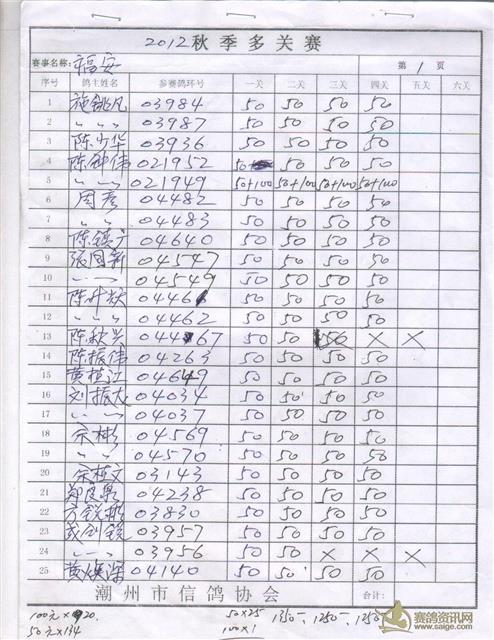 2012秋季多关赛
赛事名称: 福安 第 1 页
序号 鸽主姓名 参赛鸽环号 一关 二关 三关 四关 五关 六关
1 施 凡 03984 50 50 50 50
2 〃 〃 03987 50 50 50 50
3 陈少华 03936 50 50 50 50
4 陈钟伟 021952 50 50 50 50
5 〃 〃 021949 50+100 50+100 50+100 50+100
6 周彦 04482 50 50 50 50
7 〃 〃 04483 50 50 50 50
8 陈镇 04640 50 50 50 50
9 张国新 04547 50 50 50 50
10 〃 〃 04549 50 50 50 50
11 陈升 0446 50 50 50 50
12 〃 〃 04462 50 50 50 50
13 陈秋兴 044 67 50 50 50 × ×
14 陈振伟 04263 50 50 50 50
15 黄植江 04649 50 50 50 50
16 刘振大 04034 50 50 50 50
17 〃 〃 04037 50 50 50 50
18 余彬 04569 50 50 50 50
19 〃 〃 04570 50 50 50 50
20 余植文 03143 50 50 50 50
21 郑良 04238 50 50 50 50
22 方锐彬 03830 50 50 50 50
23 剑锐 03957 50 50 50 50
24 〃 〃 03956 50 × × ×
25 黄 深 04140 50 50 50 50
潮州市信鸽协会 合计:
100元× 20. 50×25 1350- 1250- 1250
50元×134 100×1
赛鸽资讯网
www.saige.com